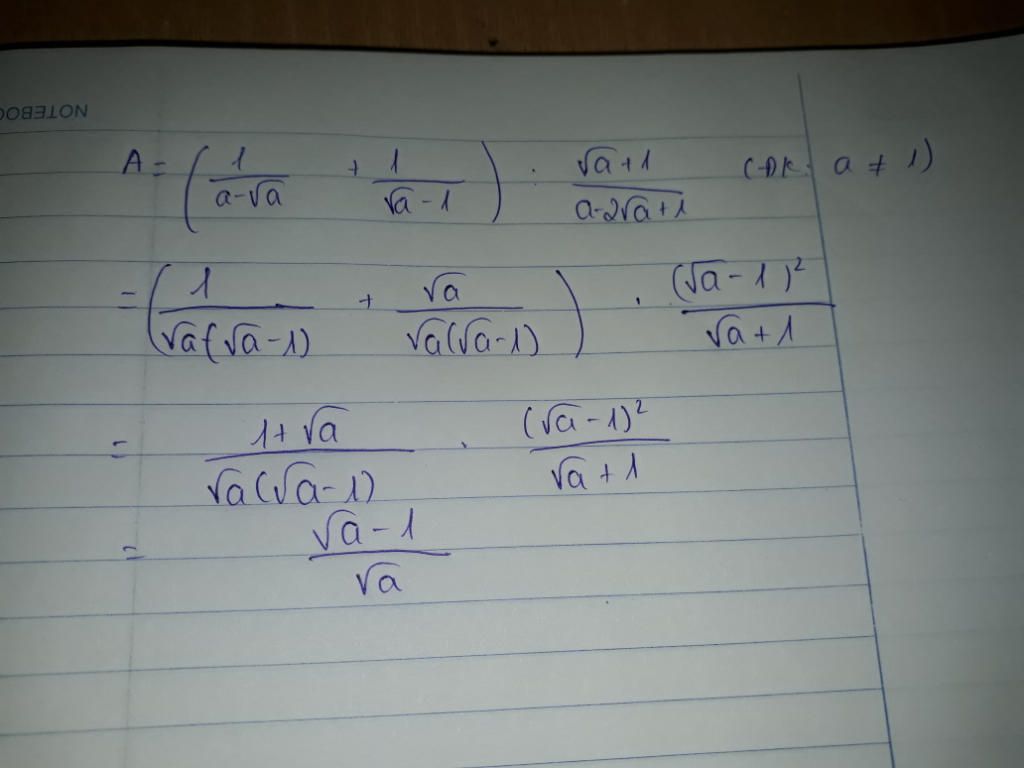 NOTEBOO
A = ( 1/(a-√a) + 1/(√a-1) ) : (√a+1)/(a-2√a+1) (ĐK: a ≠ 1)
= ( 1/(√a(√a-1)) + √a/(√a(√a-1)) ) . (√a-1)²/(√a+1)
= (1+√a)/(√a(√a-1)) . (√a-1)²/(√a+1)
= (√a-1)/√a